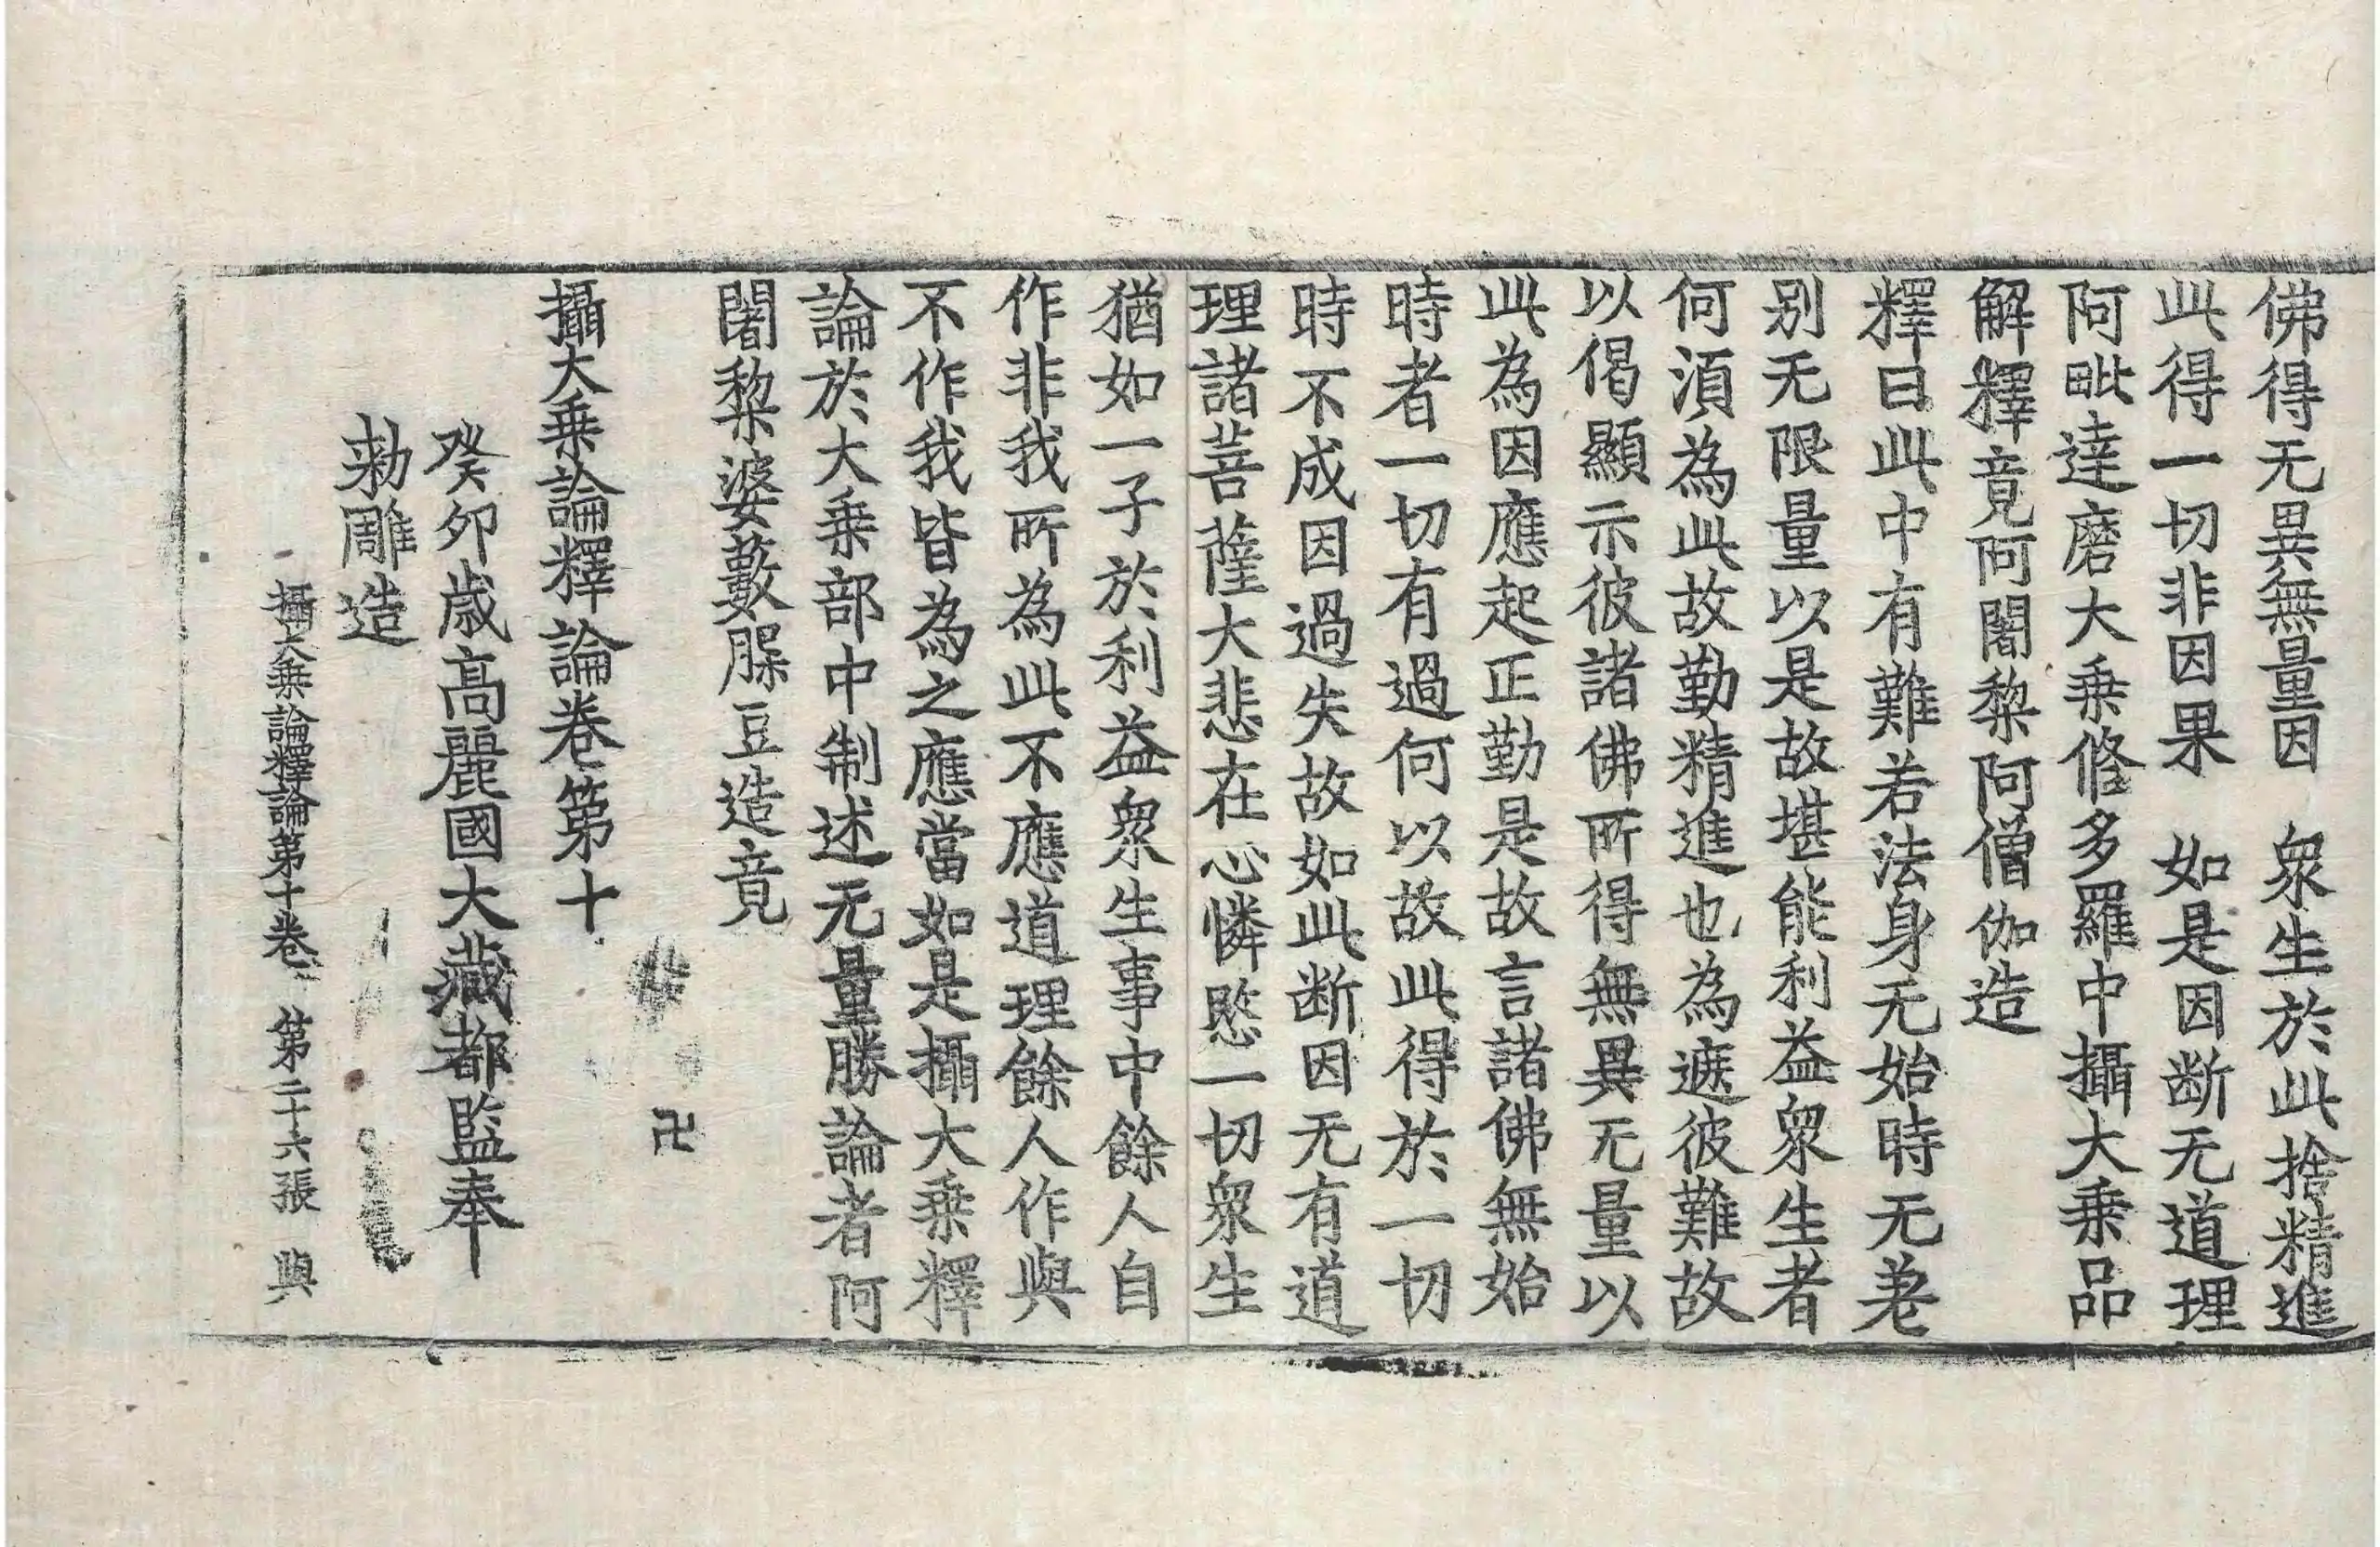 佛得无異無量因　衆生於此捨精進
此得一切非因果　如是因断无道理
阿毗達磨大乗修多羅中攝大乗品
解釋竟阿闍黎阿僧伽造
釋曰此中有難若法身无始時无差
别无限量以是故堪能利益衆生者
何須為此故勤精進也為遮彼難故
以偈顯示彼諸佛所得無異无量以
此為因應起正勤是故言諸佛無始
時者一切有過何以故此得於一切
時不成因過失故如此断因无有道
理諸菩薩大悲在心憐愍一切衆生
猶如一子於利益衆生事中餘人自
作非我所為此不應道理餘人作與
不作我皆為之應當如是攝大乗釋
論於大乗部中制述无量勝論者阿
闍黎婆藪脲豆造竟
卍
攝大乗論釋論卷第十
癸夘歳高麗國大藏都監奉
勑雕造
攝大乗論釋論第十卷　第二十六張　與